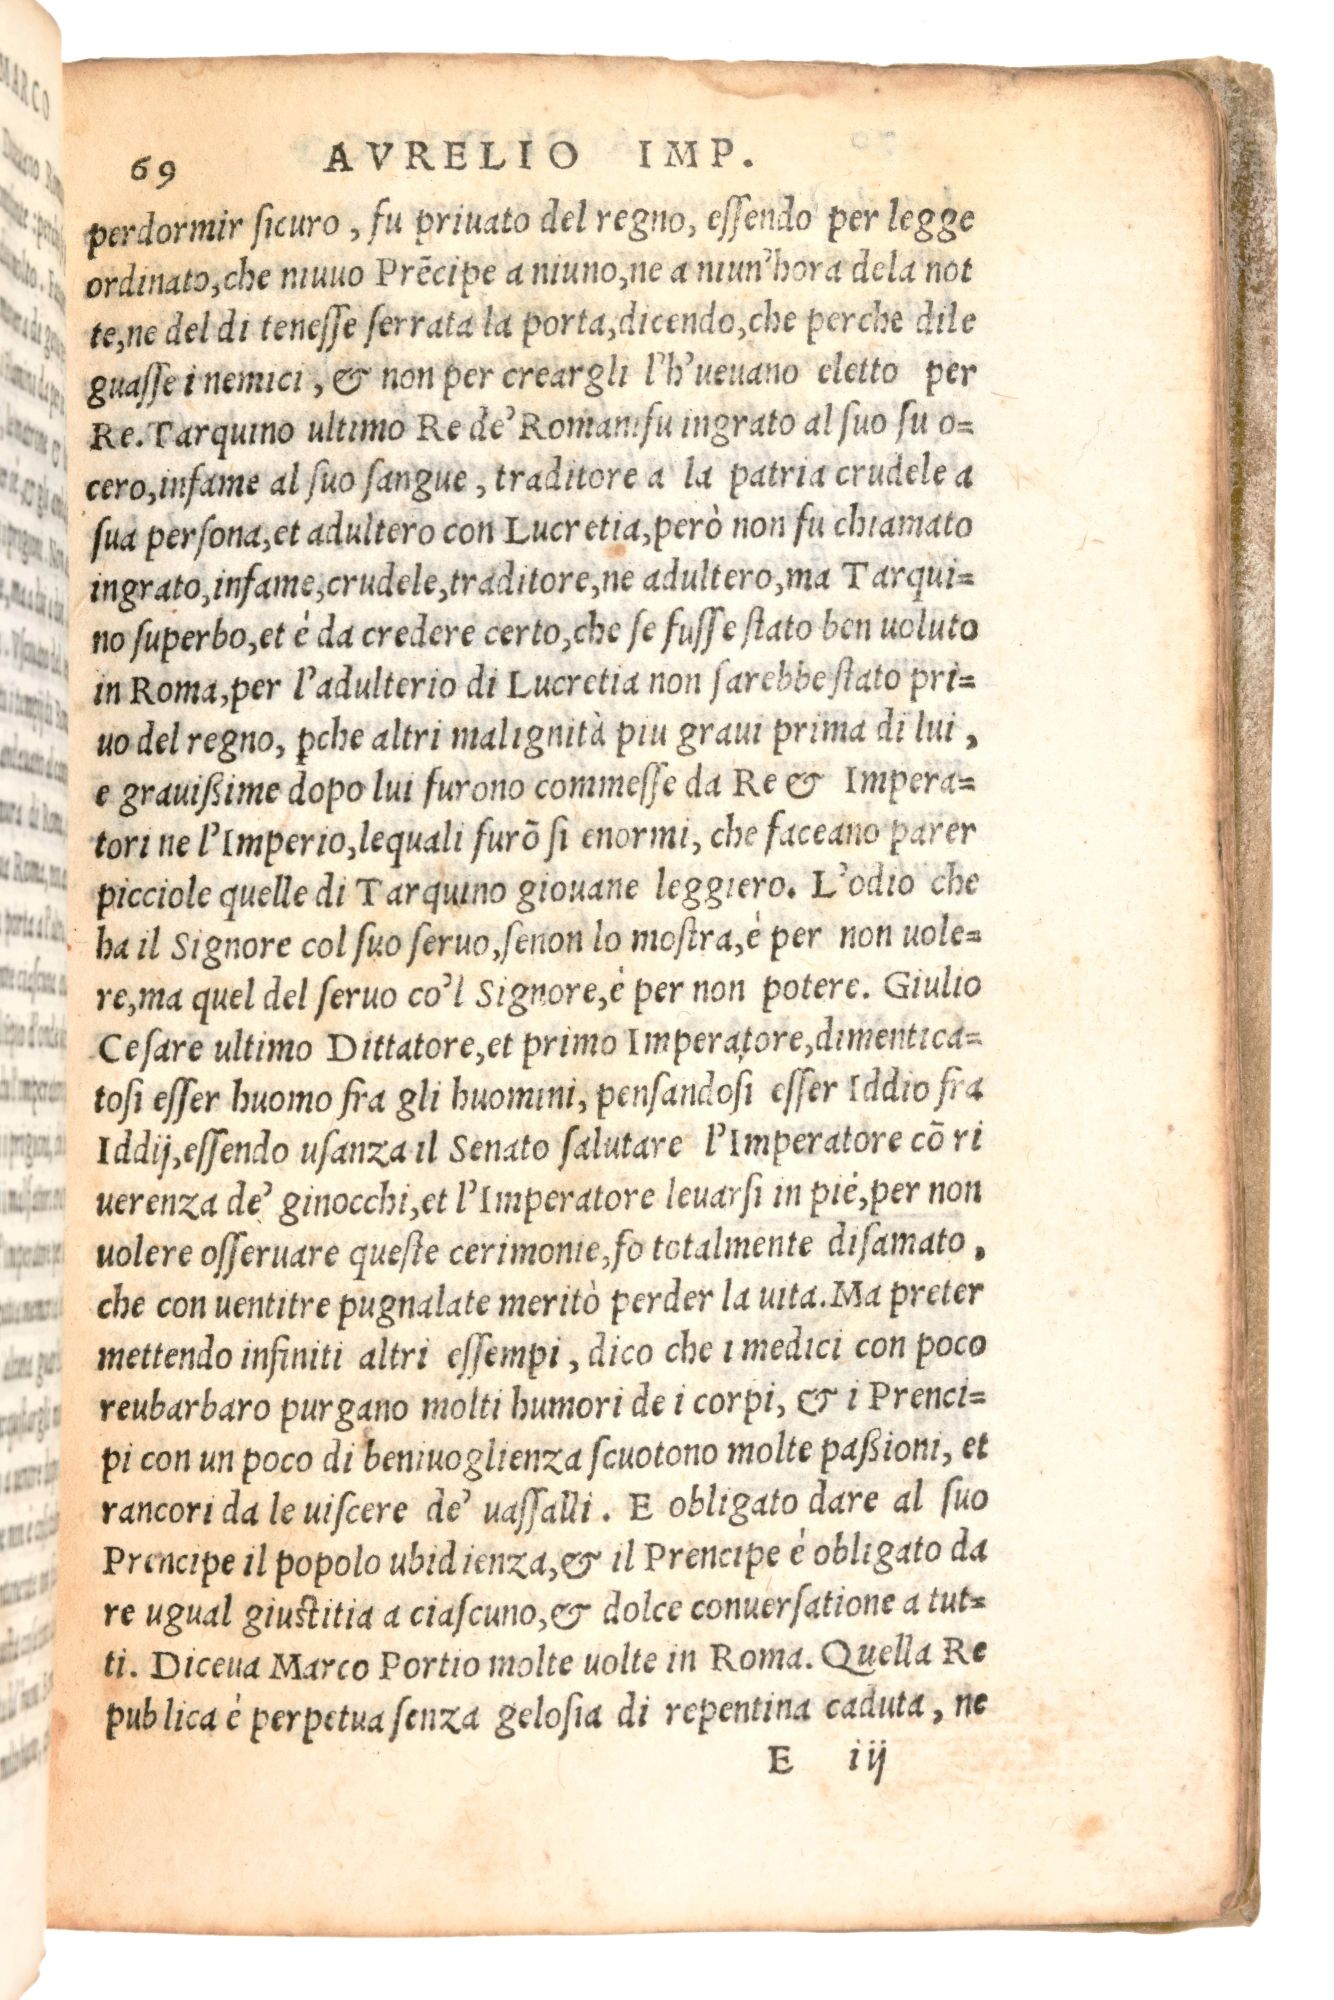 69 AVRELIO IMP.
perdormir sicuro, fu priuato del regno, essendo per legge
ordinato, che niuuo Prēcipe a niuno, ne a niun'hora dela not
te, ne del di tenesse serrata la porta, dicendo, che perche dile
guasse i nemici, & non per creargli l'h'ueuano eletto per
Re. Tarquino ultimo Re de' Romani fu ingrato al suo su o=
cero, infame al suo sangue, traditore a la patria crudele a
sua persona, et adultero con Lucretia, però non fu chiamato
ingrato, infame, crudele, traditore, ne adultero, ma Tarqui=
no superbo, et è da credere certo, che se fusse stato ben uoluto
in Roma, per l'adulterio di Lucretia non sarebbe stato pri=
uo del regno, ꝑche altri malignità piu graui prima di lui,
e grauißime dopo lui furono commesse da Re & Impera=
tori ne l'Imperio, lequali furō si enormi, che faceano parer
picciole quelle di Tarquino giouane leggiero. L'odio che
ha il Signore col suo seruo, senon lo mostra, è per non uole=
re, ma quel del seruo co'l Signore, è per non potere. Giulio
Cesare ultimo Dittatore, et primo Imperatore, dimentica=
tosi esser huomo fra gli huomini, pensandosi esser Iddio fra
Iddij, essendo usanza il Senato salutare l'Imperatore cō ri
uerenza de' ginocchi, et l'Imperatore leuarsi in piè, per non
uolere osseruare queste cerimonie, fo totalmente disamato,
che con uentitre pugnalate meritò perder la uita. Ma preter
mettendo infiniti altri essempi, dico che i medici con poco
reubarbaro purgano molti humori de i corpi, & i Prenci=
pi con un poco di beniuoglienza scuotono molte paßioni, et
rancori da le uiscere de' uassalli. E obligato dare al suo
Prencipe il popolo ubidienza, & il Prencipe è obligato da
re ugual giustitia a ciascuno, & dolce conuersatione a tut=
ti. Diceua Marco Portio molte uolte in Roma. Quella Re
publica è perpetua senza gelosia di repentina caduta, ne
E iij